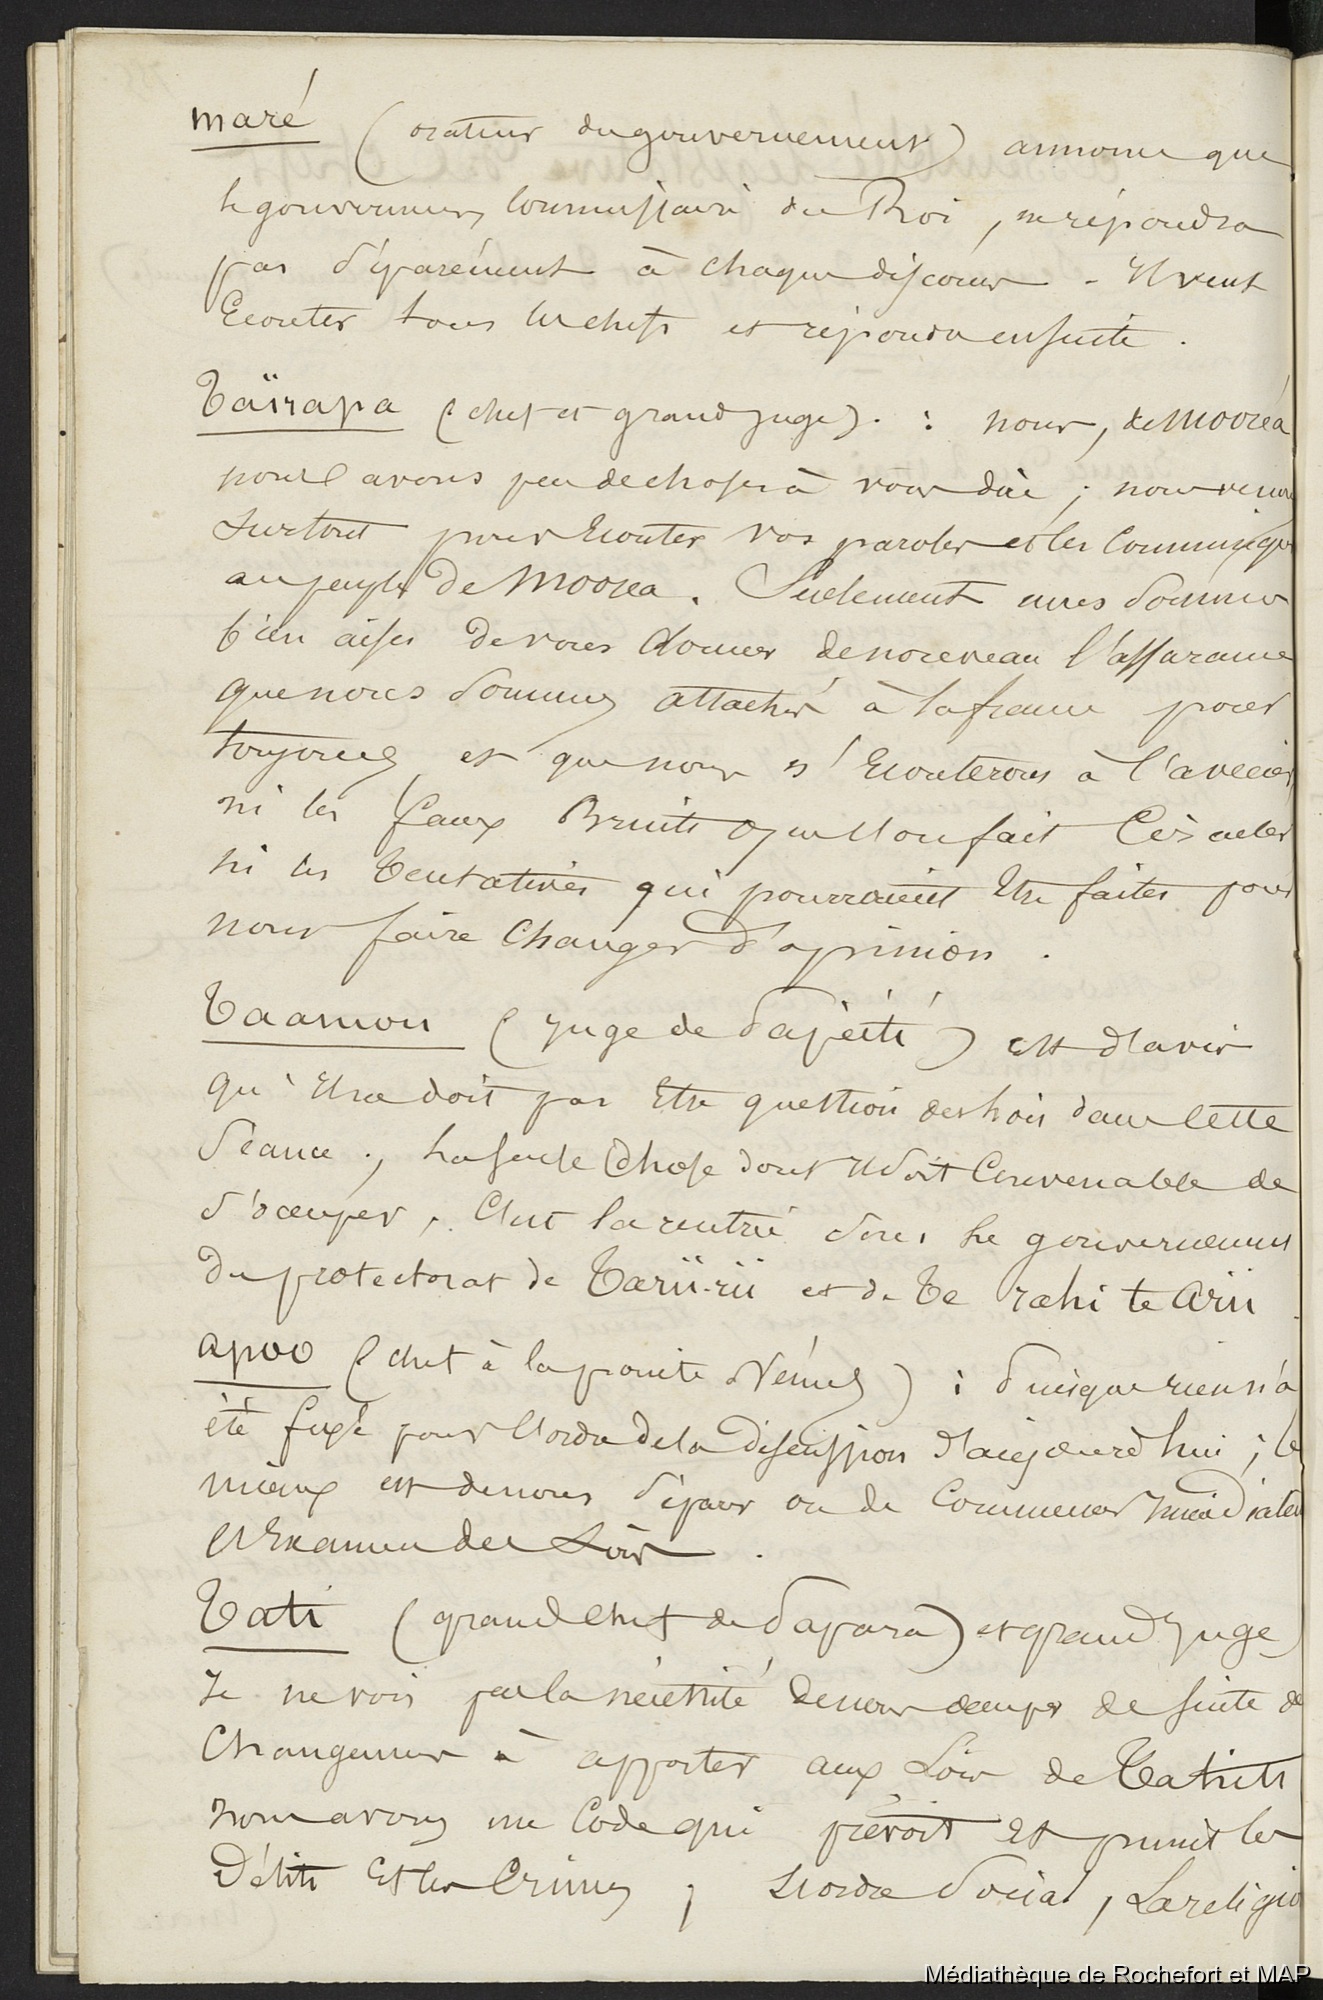 maré (orateur du gouvernement) annonce que
le gouverneur, Commissaire du Roi, ne répondra
pas séparément à chaque discours. Il veut
Ecouter tous les chefs et répondra ensuite.
Taïrapa (chef et grand juge). : nous, de Mooréa
nous avons peu de choses à vous dire ; nous venons
surtout pour Ecouter vos paroles et les Communiquer
au peuple De Moorea. Seulement nous sommes
bien aises De vous donner de nouveau l'assurance
que nous sommes attachés à la france pour
toujours, et que nous n'Ecouterons à l'avenir,
ni les faux Bruits que l'on fait Circuler
ni les Tentatives qui pourraient Etre faites pour
nous faire Changer d'opinion.
Taamou (juge de Papéiti) est d'avis
qu'il ne doit pas Etre question des lois dans Cette
Séance ; La seule Chose dont il soit Convenable de
s'occuper, C'est la rentrée sous le gouvernement
Du protectorat de Tariirii et de Te rahi te Arii
Apoo (chef à la pointe Vénus) : Puisque rien n'a
été fixé pour l'ordre de la Discussion d'aujourd'hui ; le
mieux est de nous séparer ou de Commencer
l'Examen des Lois.
Tati (grand Chef de Papara) et grand juge
Je ne vois pas la nécessité de nous occuper de suite de
Changemens à apporter aux Lois de Tahiti
nous avons un Code qui prévoit Et punit les
Délits Et les Crimes ; L'ordre Social, La religion
Médiathèque de Rochefort et MAP